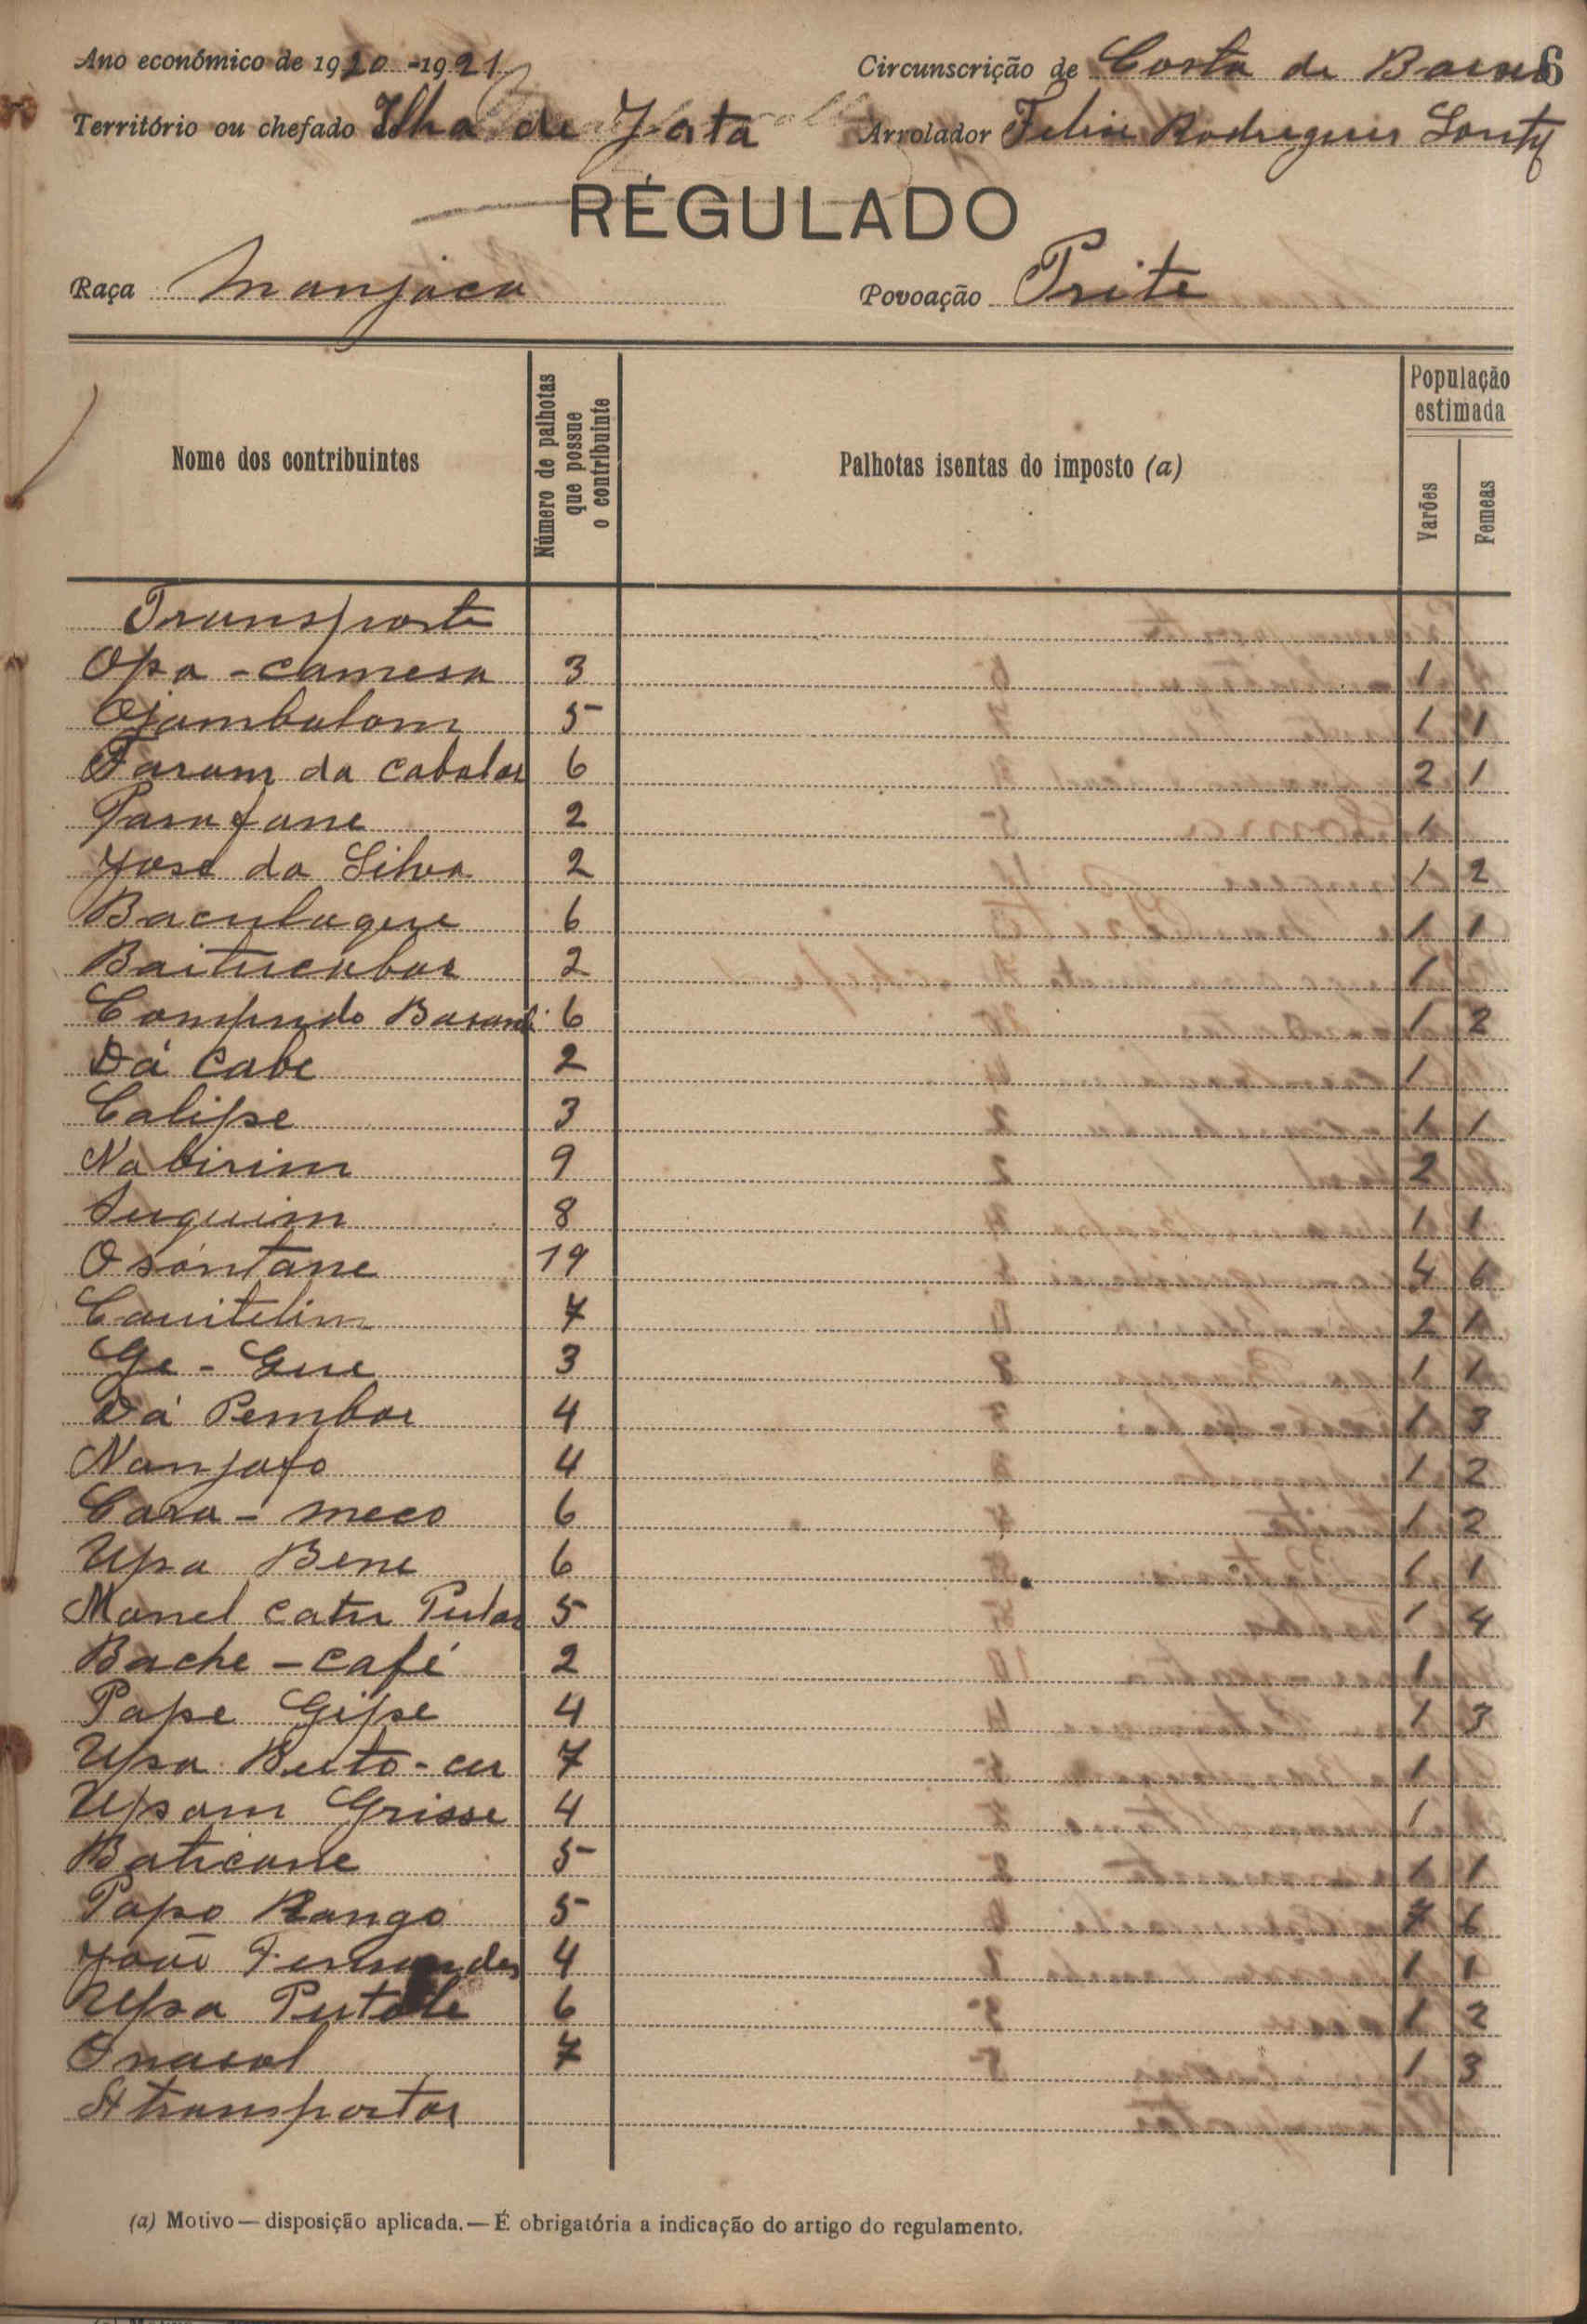 Ano económico de 1920-1921 Circunscrição de Costa de Baixo 6
Território ou chefado Ilha de Jata Arrolador Felix Rodrigues
RÉGULADO
Raça Manjaca Povoação Prite
Nome dos contribuintes Número de palhotas que possue o contribuinte Palhotas isentas do imposto (a) População estimada Varões Femeas
Transporte
Opa - camesa 3 1
Ojambulom 5 1 1
Faram da cabalar 6 2 1
Parafane 2 1
José da Silva 2 1 2
Baculaque 6 1 1
Baitucabar 2 1
Compudo 6 1 2
Dá Cabe 2 1
Calipse 3 1 1
Nabirim 9 2
Suquim 8 1 1
Osóntane 19 4 6
Cauitelim 7 2 1
Ge - Gue 3 1 1
Dá Pembar 4 1 3
Nanjafo 4 1 2
Cara - meco 6 1 2
Upa Bene 6 1 1
Manel catu 5 1 4
Bache - café 2 1
Pape Gipse 4 1 3
Upa Buto-cu 7 1
Upsom Grisse 4 1
Baticane 5 1 1
Papo Rangó 5 7 6
João Fernandes 4 1 1
Upa 6 1 2
Onacal 7 1 3
A transportar
(a) Motivo — disposição aplicada. — É obrigatória a indicação do artigo do regulamento.